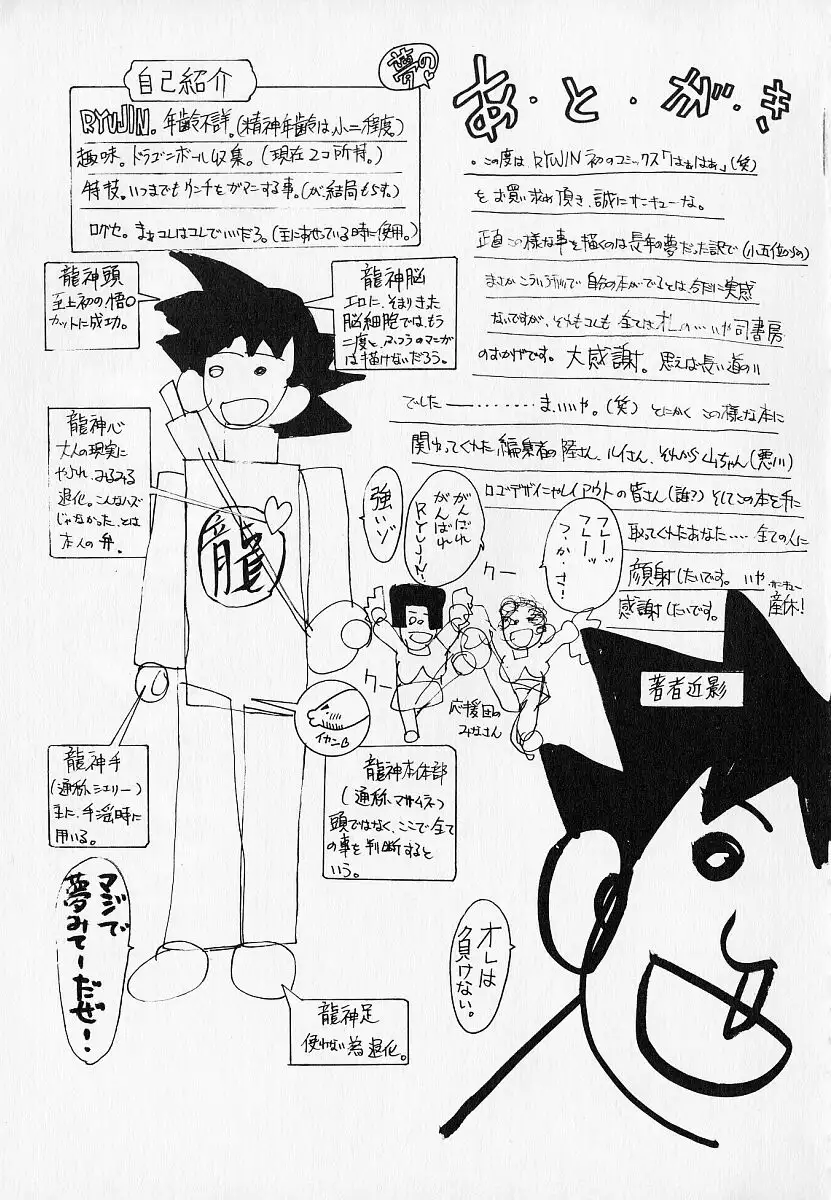 あ・と・が・き
・この度は RYUJIN 初のコミックス「はぁはぁ」(笑)
をお買い求め頂き、誠にサンキューな。
正直この様な事を描くのは長年の夢だった訳で(小五位からの)
まさかこういう
自分の本がでるとは、今だに実感
ないですが、それもコレも全てはオレの……いや司書房
のおかげです。大感謝。思えば長い道のり
でした――………ま、いいや。(笑)とにかくこの様な本に
関わってくれた編集者の陸さん、ルイさん、それから山ちゃん(悪川)
ロゴデザイにゃレイアウトの皆さん(誰?)そしてこの本を手に
取ってくれたあなた……全ての人に
顔射したいです。いや
感謝したいです。
サンキュー
産休!
夢の♡
自己紹介
RYUJIN。年齢不詳。(精神年齢は、小二程度)
趣味。ドラゴンボール収集。(現在2コ所持。)
特技。いつまでもウンチをガマンする事。(が、結局もらす。)
口グセ。まぁコレはコレでいいだろ。(主にあせっている時に使用。)
龍神頭
至上初の悟〇
カットに成功。
龍神脳
エロに、そまりきった
脳細胞では、もう
二度と、ふつうのマンガ
は描けないだろう。
龍神心
大人の現実に
やぶれ、みるみる
退化。こんなハズ
じゃなかった、とは
本人の弁。
龍
強いゾ
がんばれ
がんばれ
RYUJIN!
フレーッ
フレーッ
つ・か・さ!
クー
クー
応援団の
みなさん
著者近影
イカンB
龍神手
(通称シェリー)
主に、手淫時に
用いる。
龍神本体部
(通称、マサムネ)
頭ではなく、ここで全て
の事を判断すると
いう。
マジで
夢みてーだぜ!
オレは
負けない。
龍神足
使わない為退化。